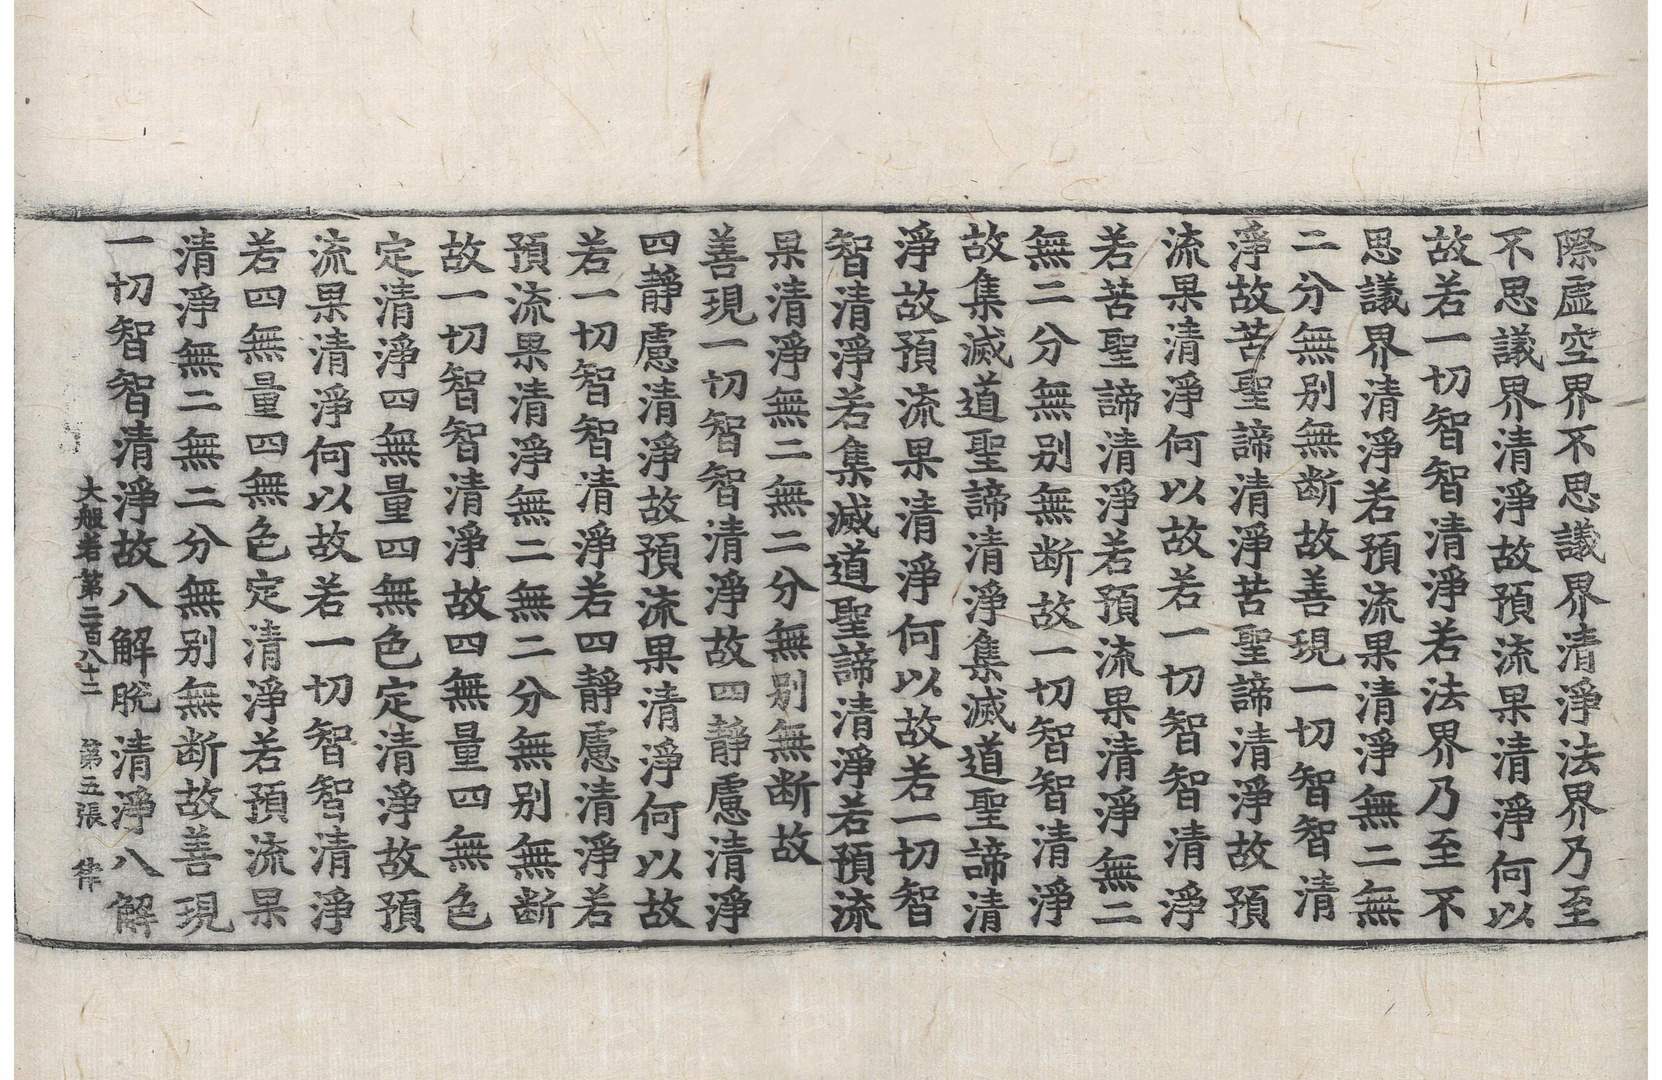 際虛空界不思議界清淨法界乃至
不思議界清淨故預流果清淨何以
故若一切智智清淨若法界乃至不
思議界清淨若預流果清淨無二無
二分無別無斷故善現一切智智清
淨故苦聖諦清淨苦聖諦清淨故預
流果清淨何以故若一切智智清淨
若苦聖諦清淨若預流果清淨無二
無二分無別無斷故一切智智清淨
故集滅道聖諦清淨集滅道聖諦清
淨故預流果清淨何以故若一切智
智清淨若集滅道聖諦清淨若預流
果清淨無二無二分無別無斷故
善現一切智智清淨故四靜慮清淨
四靜慮清淨故預流果清淨何以故
若一切智智清淨若四靜慮清淨若
預流果清淨無二無二分無別無斷
故一切智智清淨故四無量四無色
定清淨四無量四無色定清淨故預
流果清淨何以故若一切智智清淨
若四無量四無色定清淨若預流果
清淨無二無二分無別無斷故善現
一切智智清淨故八解脫清淨八解
大般若第二百八十二 第五張 律